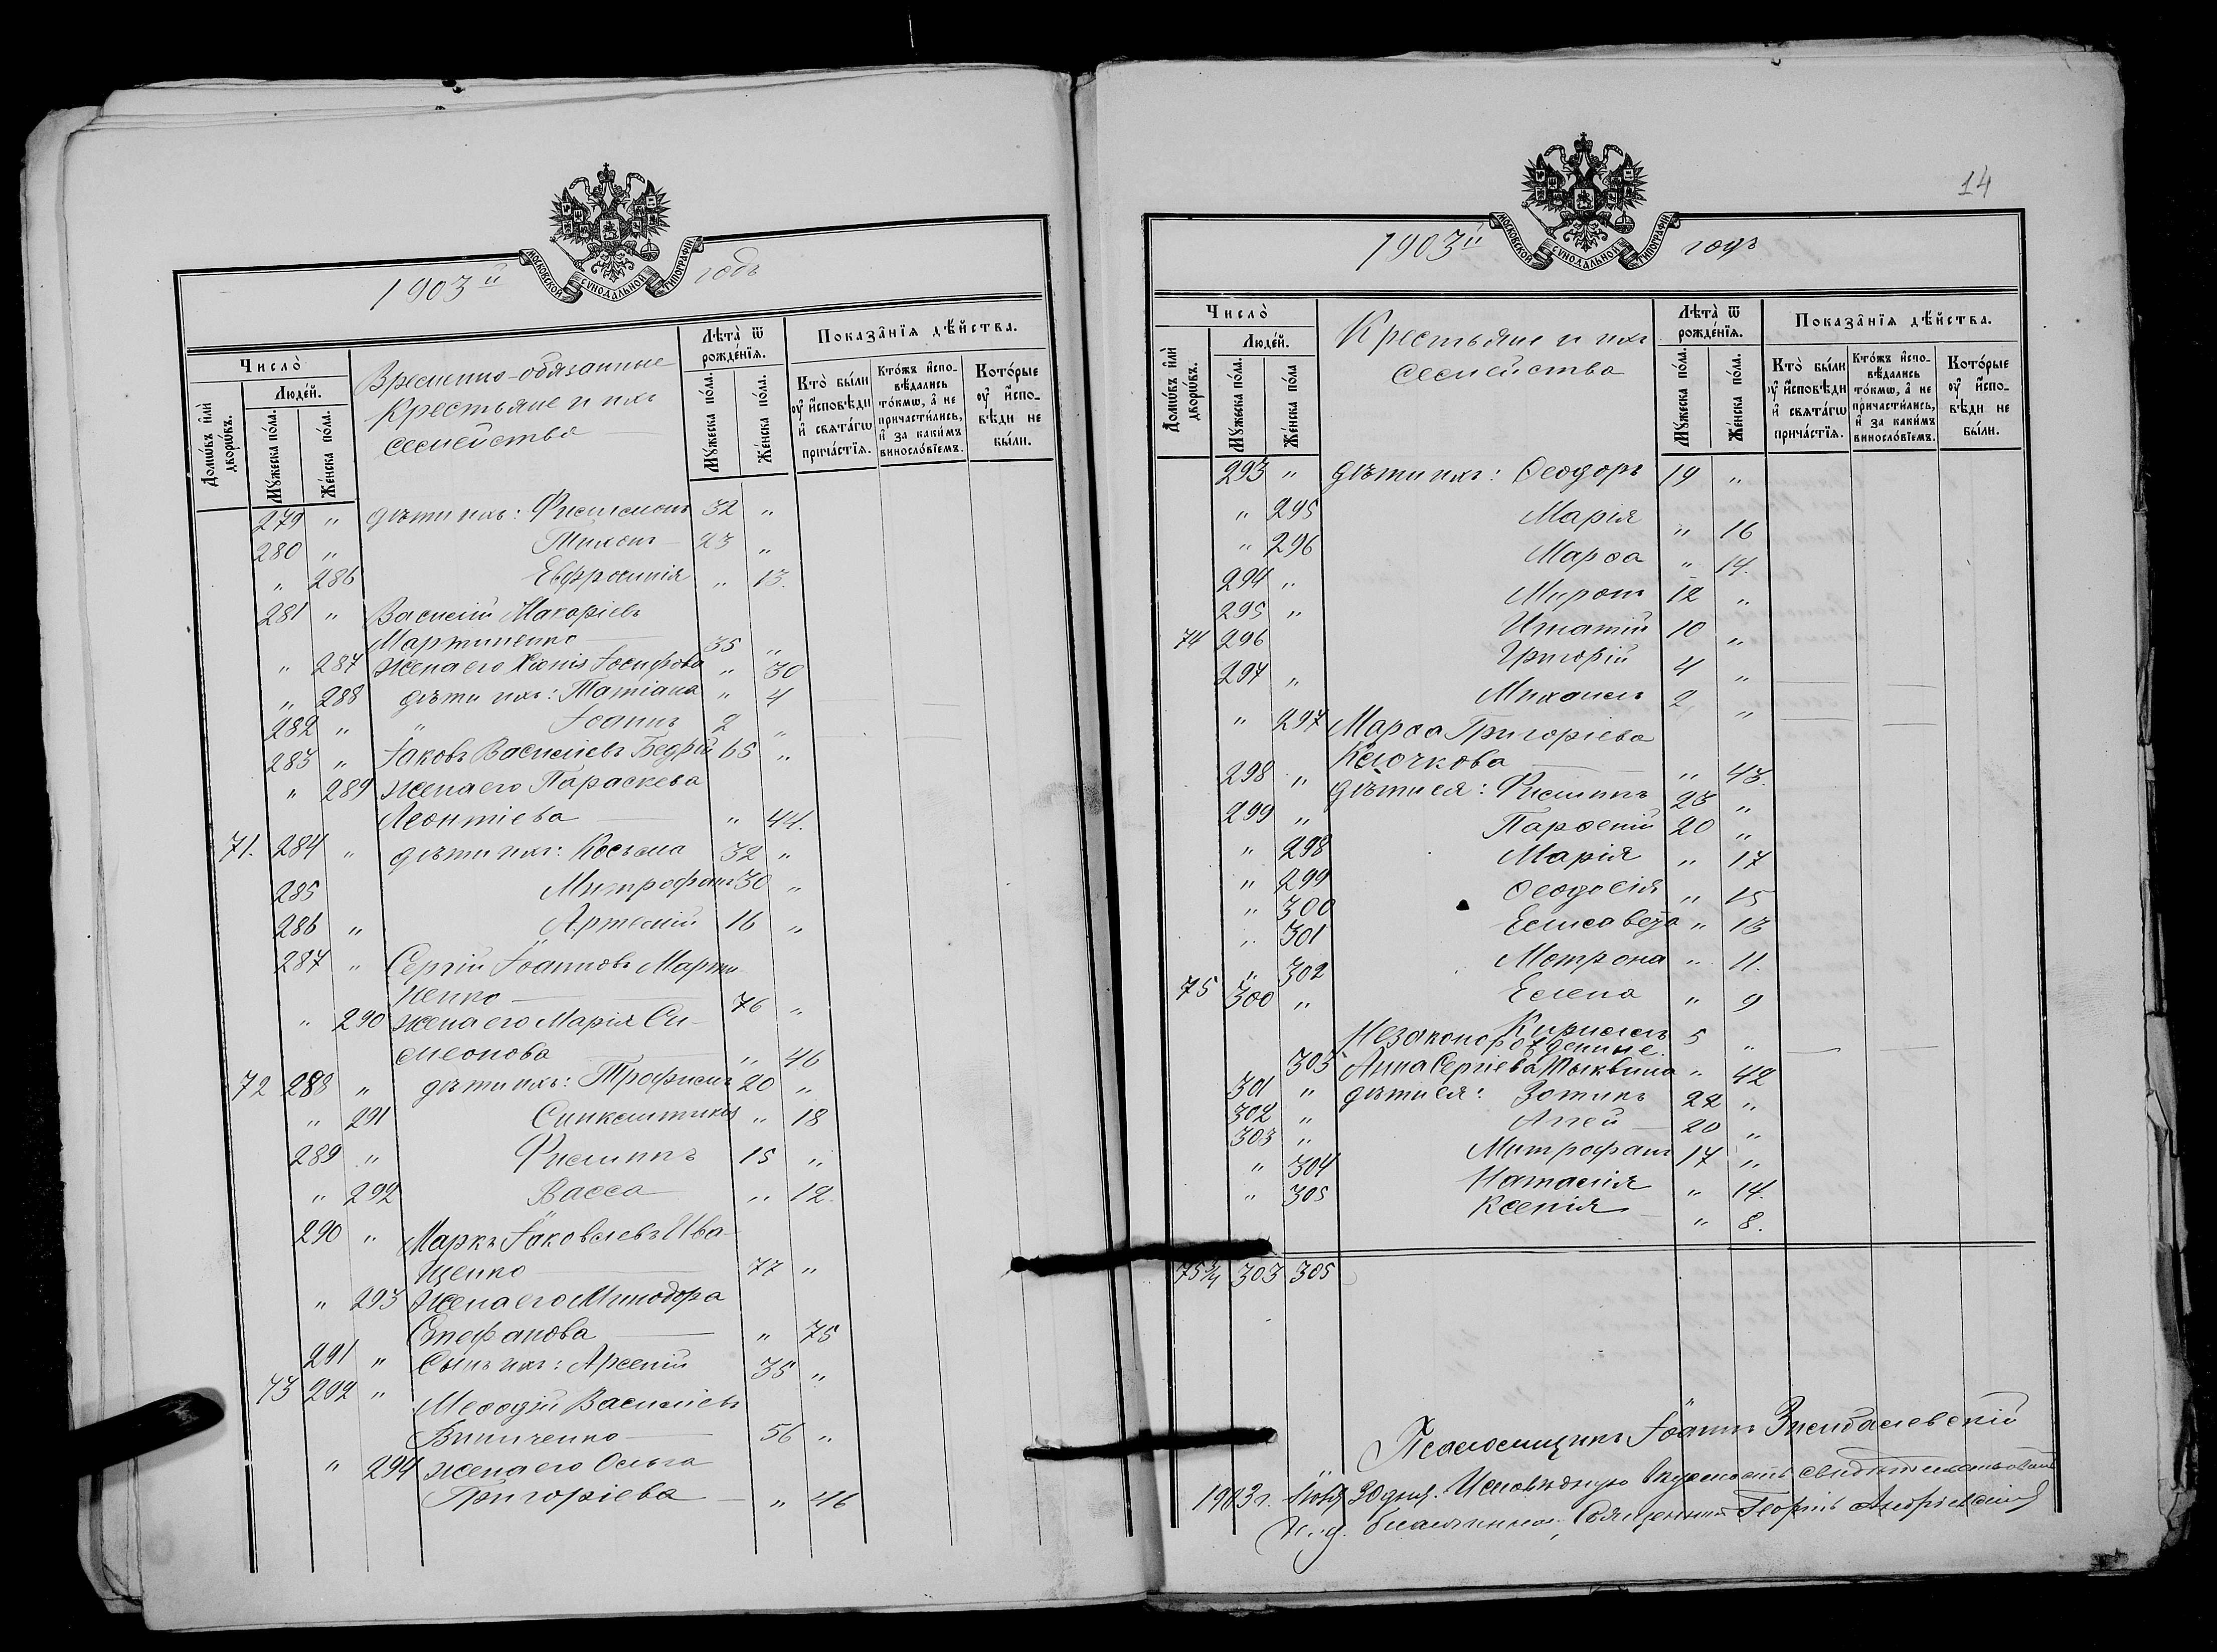 1903й годъ
МОСКОВСКОЙ СѴНОДАЛЬНОЙ ТИПОГРАФІИ
Число̀
Домѡ́въ и҆лѝ дворѡ́въ.
Люде́й.
Мꙋ́жеска по́ла.
Же́нска по́ла.
Временно-обязанные
Крестьяне и ихъ
семейства
Лѣта̀ ѿ рожде́нїѧ.
Мꙋ́жеска по́ла.
Же́нска по́ла.
Показа̂нїѧ дѣ́йства.
Кто̀ бы́ли оу҆ и҆сповѣ́ди и҆ свѧта́гѡ прича́стїѧ.
Кто́жъ и҆спо-вѣ́дались то́кмѡ, а҆ не причасти́лись, и҆ за каки́мъ виносло́вїемъ.
Кото́рые оу҆ и҆спо-вѣ́ди не бы́ли.
279 " дѣти ихъ: Филимонъ 32 "
280 " Тихонъ 23 "
" 286 Евфросинія " 13.
281 " Василій Макаріевъ
Мартиненко 35 "
" 287 жена его Хіонія Іосифова " 30
" 288 дѣти ихъ: Татіана " 4
282 " " Іоаннъ 2 "
283 " Іаковъ Василіевъ Бедрій 65 "
" 289 жена его Параскева
Леонтіева " 44.
71. 284 " дѣти ихъ: Косьма 32 "
285 Митрофанъ 30 "
286 " Артемій 16 "
287 " Сергій Іоанновъ Марти-
ненко 76 "
" 290 жена его Марія Си-
меонова " 46
72 288 " дѣти ихъ: Трофимъ 20 "
" 291 Синклитикія " 18
289 " Филиппъ 15 "
" 292 Васса " 12.
290 " Маркъ Іаковлевъ Ива-
щенко 77 "
" 293 Жена его Минодора
Стефанова " 75
291 " Сынъ ихъ: Арсеній 35 "
73 292 " Меѳодій Василіевъ
Винниченко 56 "
" 294 жена его Ольга
Григоріева " 46
14
1903й годъ
МОСКОВСКОЙ СѴНОДАЛЬНОЙ ТИПОГРАФІИ
Число̀
Домѡ́въ и҆лѝ дворѡ́въ.
Люде́й.
Мꙋ́жеска по́ла.
Же́нска по́ла
Крестьяне и ихъ
семейства
Лѣта̀ ѿ рожде́нїѧ.
Мꙋ́жеска по́ла.
Же́нска по́ла.
Показа̂нїѧ дѣ́йства.
Кто̀ бы́ли оу҆ и҆сповѣ́ди и҆ свѧта́гѡ прича́стїѧ.
Кто́жъ и҆спо-вѣ́дались то́кмѡ, а҆ не причасти́лись, и҆ за каки́мъ виносло́вїемъ.
Кото́рые оу҆ и҆спо-вѣ́ди не бы́ли.
293 " дѣти ихъ: Ѳеодоръ 19 "
" 295 Марія " 16
" 296 Марѳа " 14.
294 " Миронъ 12 "
295 " Игнатій 10 "
74 296 Григорій 4 "
297 " Михаилъ 2 "
" 297 Марѳа Григоріева
Клочкова " 43.
298 " дѣти ея: Филиппъ 23 "
299 " Парѳеній 20 "
" 298 Марія " 17
" 299 Ѳеодосія " 15
" 300 Елисавета " 13
" 301 Матрона " 11.
" 302 Елена " 9
75 300 " Кириллъ 5 "
Незаконорожденные.
303 Анна Сергіева Тыквина " 42
301 " дѣти ея: Зотикъ 22 "
302 " Аггей 20 "
303 " Митрофанъ 17 "
" 304 Наталія " 14.
" 305 Ксенія " 8.
75 3/4 303 305
Псаломщикъ Іоаннъ
1903 г. Ноября 30 дня. Исповѣдную свидѣтельствовалъ
И. д. благочиннаго, Священникъ Георгій Андріевскій